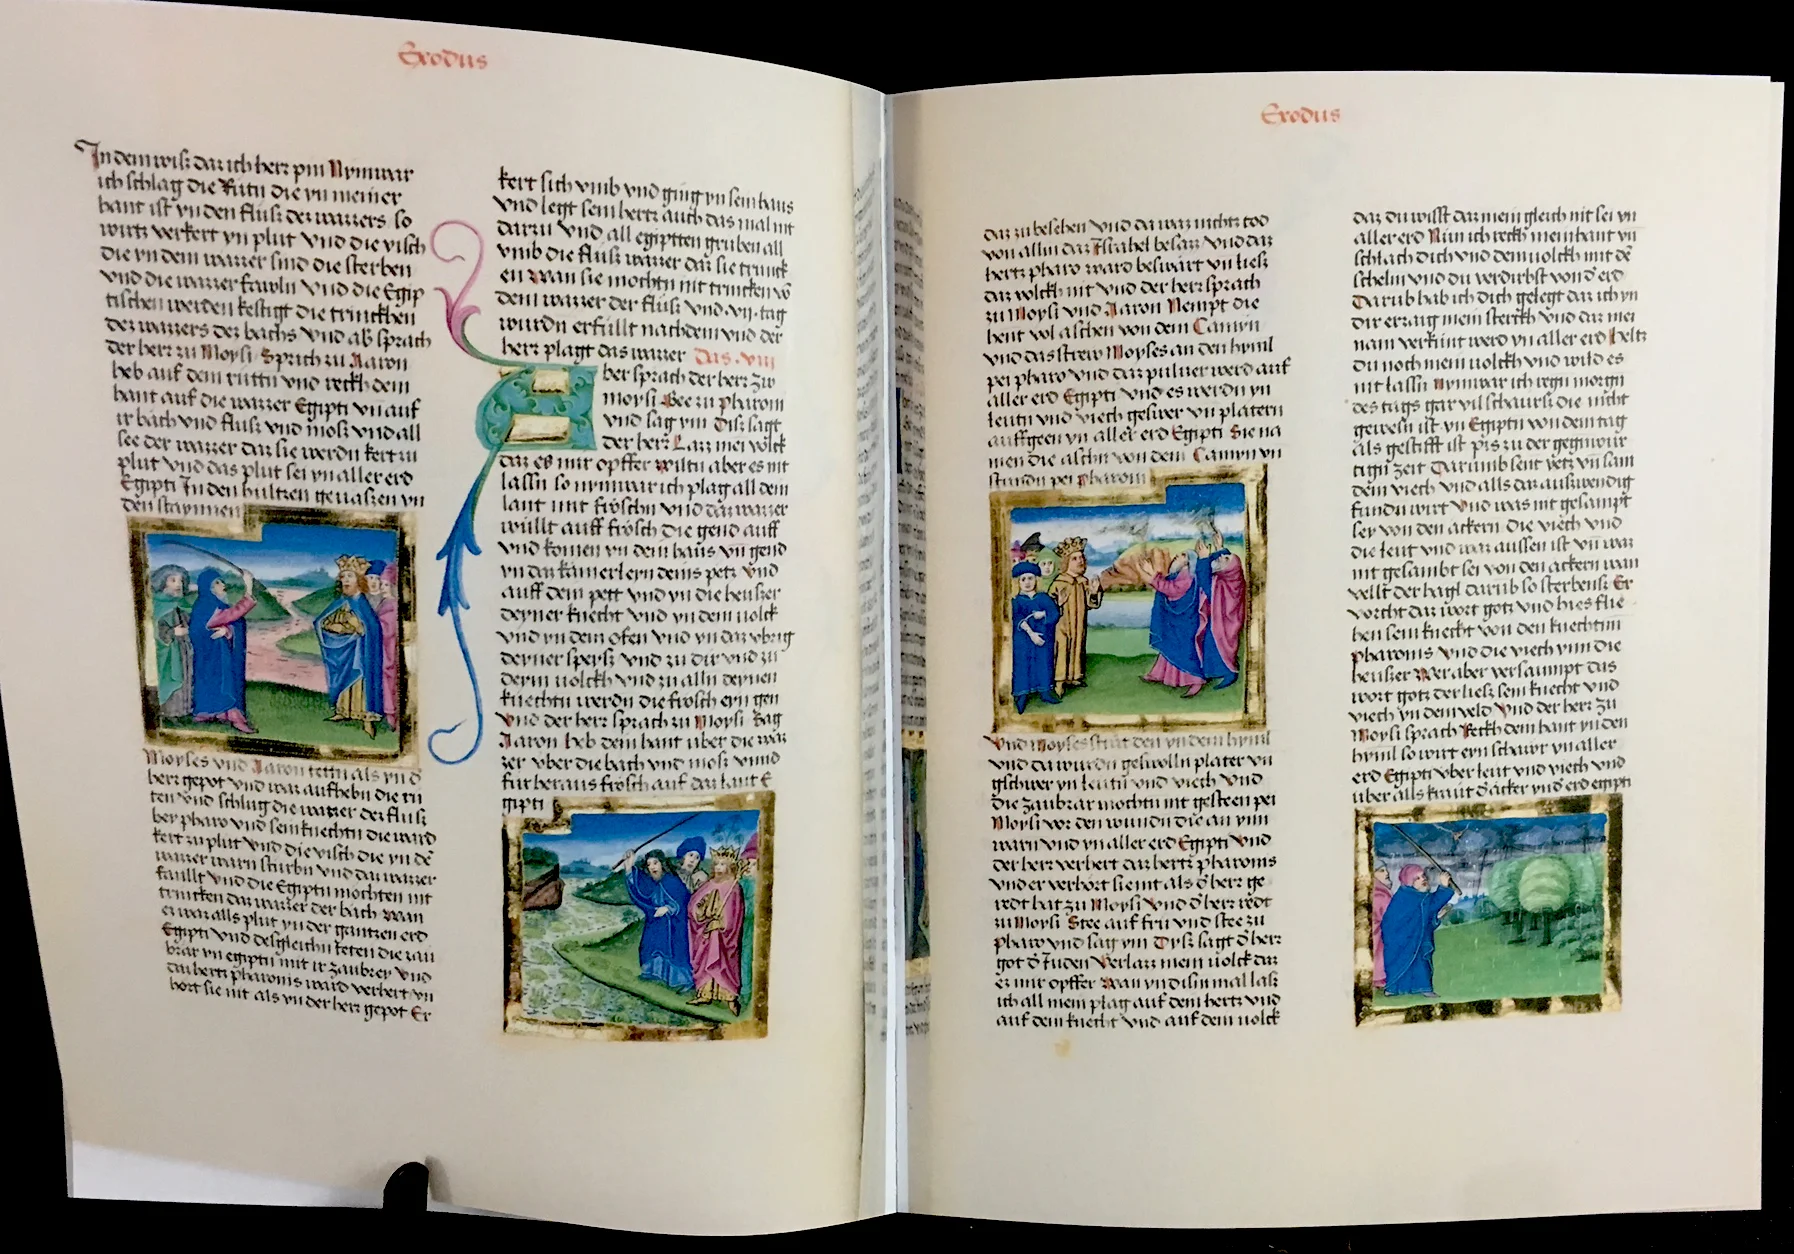 Exodus
In dem wisß daz ich herr pin Nymwar
ich schlag die Rutn die yn meiner
hant ist yn den flusß der wazzers so
wirtz verkert yn plut Vnd die visch
die yn dem wazzer sind die sterben
vnd die wazzer fawln Vnd die Egip
tischen werden kestigt die trinckhen
der wazzers der bachs Vnd ab sprach
der herr zu Moysi Sprich zu Aaron
heb auf dein ruttn vnd reckh dein
hant auf die wazzer Egipti vn auf
ir bach vnd flusß vnd mosß vnd all
see der wazzer daz sie werdn kert zu
plut Vnd das plut sei yn aller erd
Egipti In den hultzen geuaszen yn
den staynnen
Moyses vnd Aaron tettn als yn d
herr gepot Vnd war aufhebn die ru
ten Vnd schlug die wazzer der flusß
bey pharo Vnd sein knechtn die ward
kert zu plut Vnd die visch die yn de
wazzer warn sturbn Vnd daz wazzer
faullt Vnd die Egiptn mochten nit
trincken daz wazzer der bach wan
ez war als plut yn der gantzen erd
Egipti Vnd desgleichn teten die zau
brar yn egiptn mit ir zaubrey Vnd
daz hertz pharonis ward verhert yn
hort sie nit als yn der herr gepot Er
kert sich vmb vnd ging yn sein haus
Vnd legt sein hertz auch das mal nit
darzu Vnd all egiptten gruben all
vmb die flusß wazzer daz sie trinck
en Wan sie mochtn nit trincken vo
dem wazzer der flusß Vnd .vii. tag
wurdn erfullt nachdem vnd der
herr plagt das wazzer Das .viii
Aber sprach der herr zw
moysi Gee zu pharon
vnd sag ym Disz sagt
der herr Lazz mei volck
daz es mir opffer wiltu aber es nit
lassn so nymwar ich plag all dein
lant mit froschn Vnd daz wazzer
wullt auff frosch die gend auff
vnd komen yn dein haus vn gend
yn daz kamerleyn deins petz Vnd
auff dein pett vnd yn die heuszer
deyner knecht Vnd yn dein uolck
vnd yn dein ofen Vnd yn daz vbrig
deyner speysz Vnd zu dir vnd zu
deim uolckh Vnd zu alln deynen
knechtn werdn die frosch eyn gen
Vnd der herr sprach zu Moysi Sag
Aaron heb dein hant uber die waz
zer vber die bach vnd mosß vnnd
fur heraus frosch auf daz lant E
gipti
Exodus
daz zu besehen Vnd da waz nichtz tod
von allm daz Israhel besazz Vnd daz
hertz pharo ward beswart vn liesz
daz volckh nit Vnd der herr sprach
zu Moysi Vnd Aaron Nempt die
hent vol aschen von dem Camyn
Vnd das strew Moyses an den hymel
pei pharo Vnd daz puluer werd auf
aller erd Egipti Vnd es werdn yn
leutn vnd viech geswer vn platern
auffgeen yn aller erd Egipti Sie na
men die aschn von dem Camyn vn
stundn pei pharoni
Vnd Moyses strat den yn dem hymel
vnd da wurdn geswolln plater vn
gschwer yn leutn vnd viech Vnd
die zaubrar mochtn nit gesteen pei
Moysi vor den wundn die an ynn
warn vnd yn aller erd Egipti Vnd
der herr verhert daz hertz pharonis
vnd er verhort sie nit als d herr ge
redt hat zu Moysi Vnd d herr redt
zu Moysi Stee auf fru vnd stee zu
pharo vnd sag ym Dysz sagt d herr
got d Juden Verlazz mein uolck daz
ez mir opffer Wan yn disin mal lasz
ich all mein plag auf dein hertz vnd
auf dein knecht Vnd auf dein uolck
daz du wisst daz mein gleich nit sei yn
aller erd Nun ich reckh mein hant vn
schlach dich vnd dein uolckh mit de
schelm vnd du verdirbst von d erd
Darub hab ich dich gelegt daz ich yn
dir erzaig mein sterckh Vnd daz mei
nam verkunt werd yn aller erd Heltz
du noch mein uolckh Vnd wild es
nit lassn Nymwar ich regn morgn
des tags gar vil schaursz die nicht
gewesn ist yn Egiptn von dem tag
als gestifft ist pisz zu der gegnwur
tign zeit Darumb sent yetz vn sam
dein viech vnd als daz auszwendig
fundn wirt Vnd was nit gesampt
sey von den ackern die viech vnd
die leut vnd waz aussen ist vn waz
nit gesambt sei von den ackern wan
vellt der hagl darub so sterbensz Er
vorcht daz wort gotz vnd hies flie
hen sein knecht von den knechtnn
pharonis Vnd die viech ynn die
heuszer Wer aber versaumpt das
wort gotz der liesz sein knecht vnd
viech yn dem veld Vnd der herr zu
Moysi sprach Reckh dein hant yn den
hyml so wirt eyn schawr yn aller
erd Egipti vber leut vnd viech vnd
uber als kraut d acker yn d erd egipti